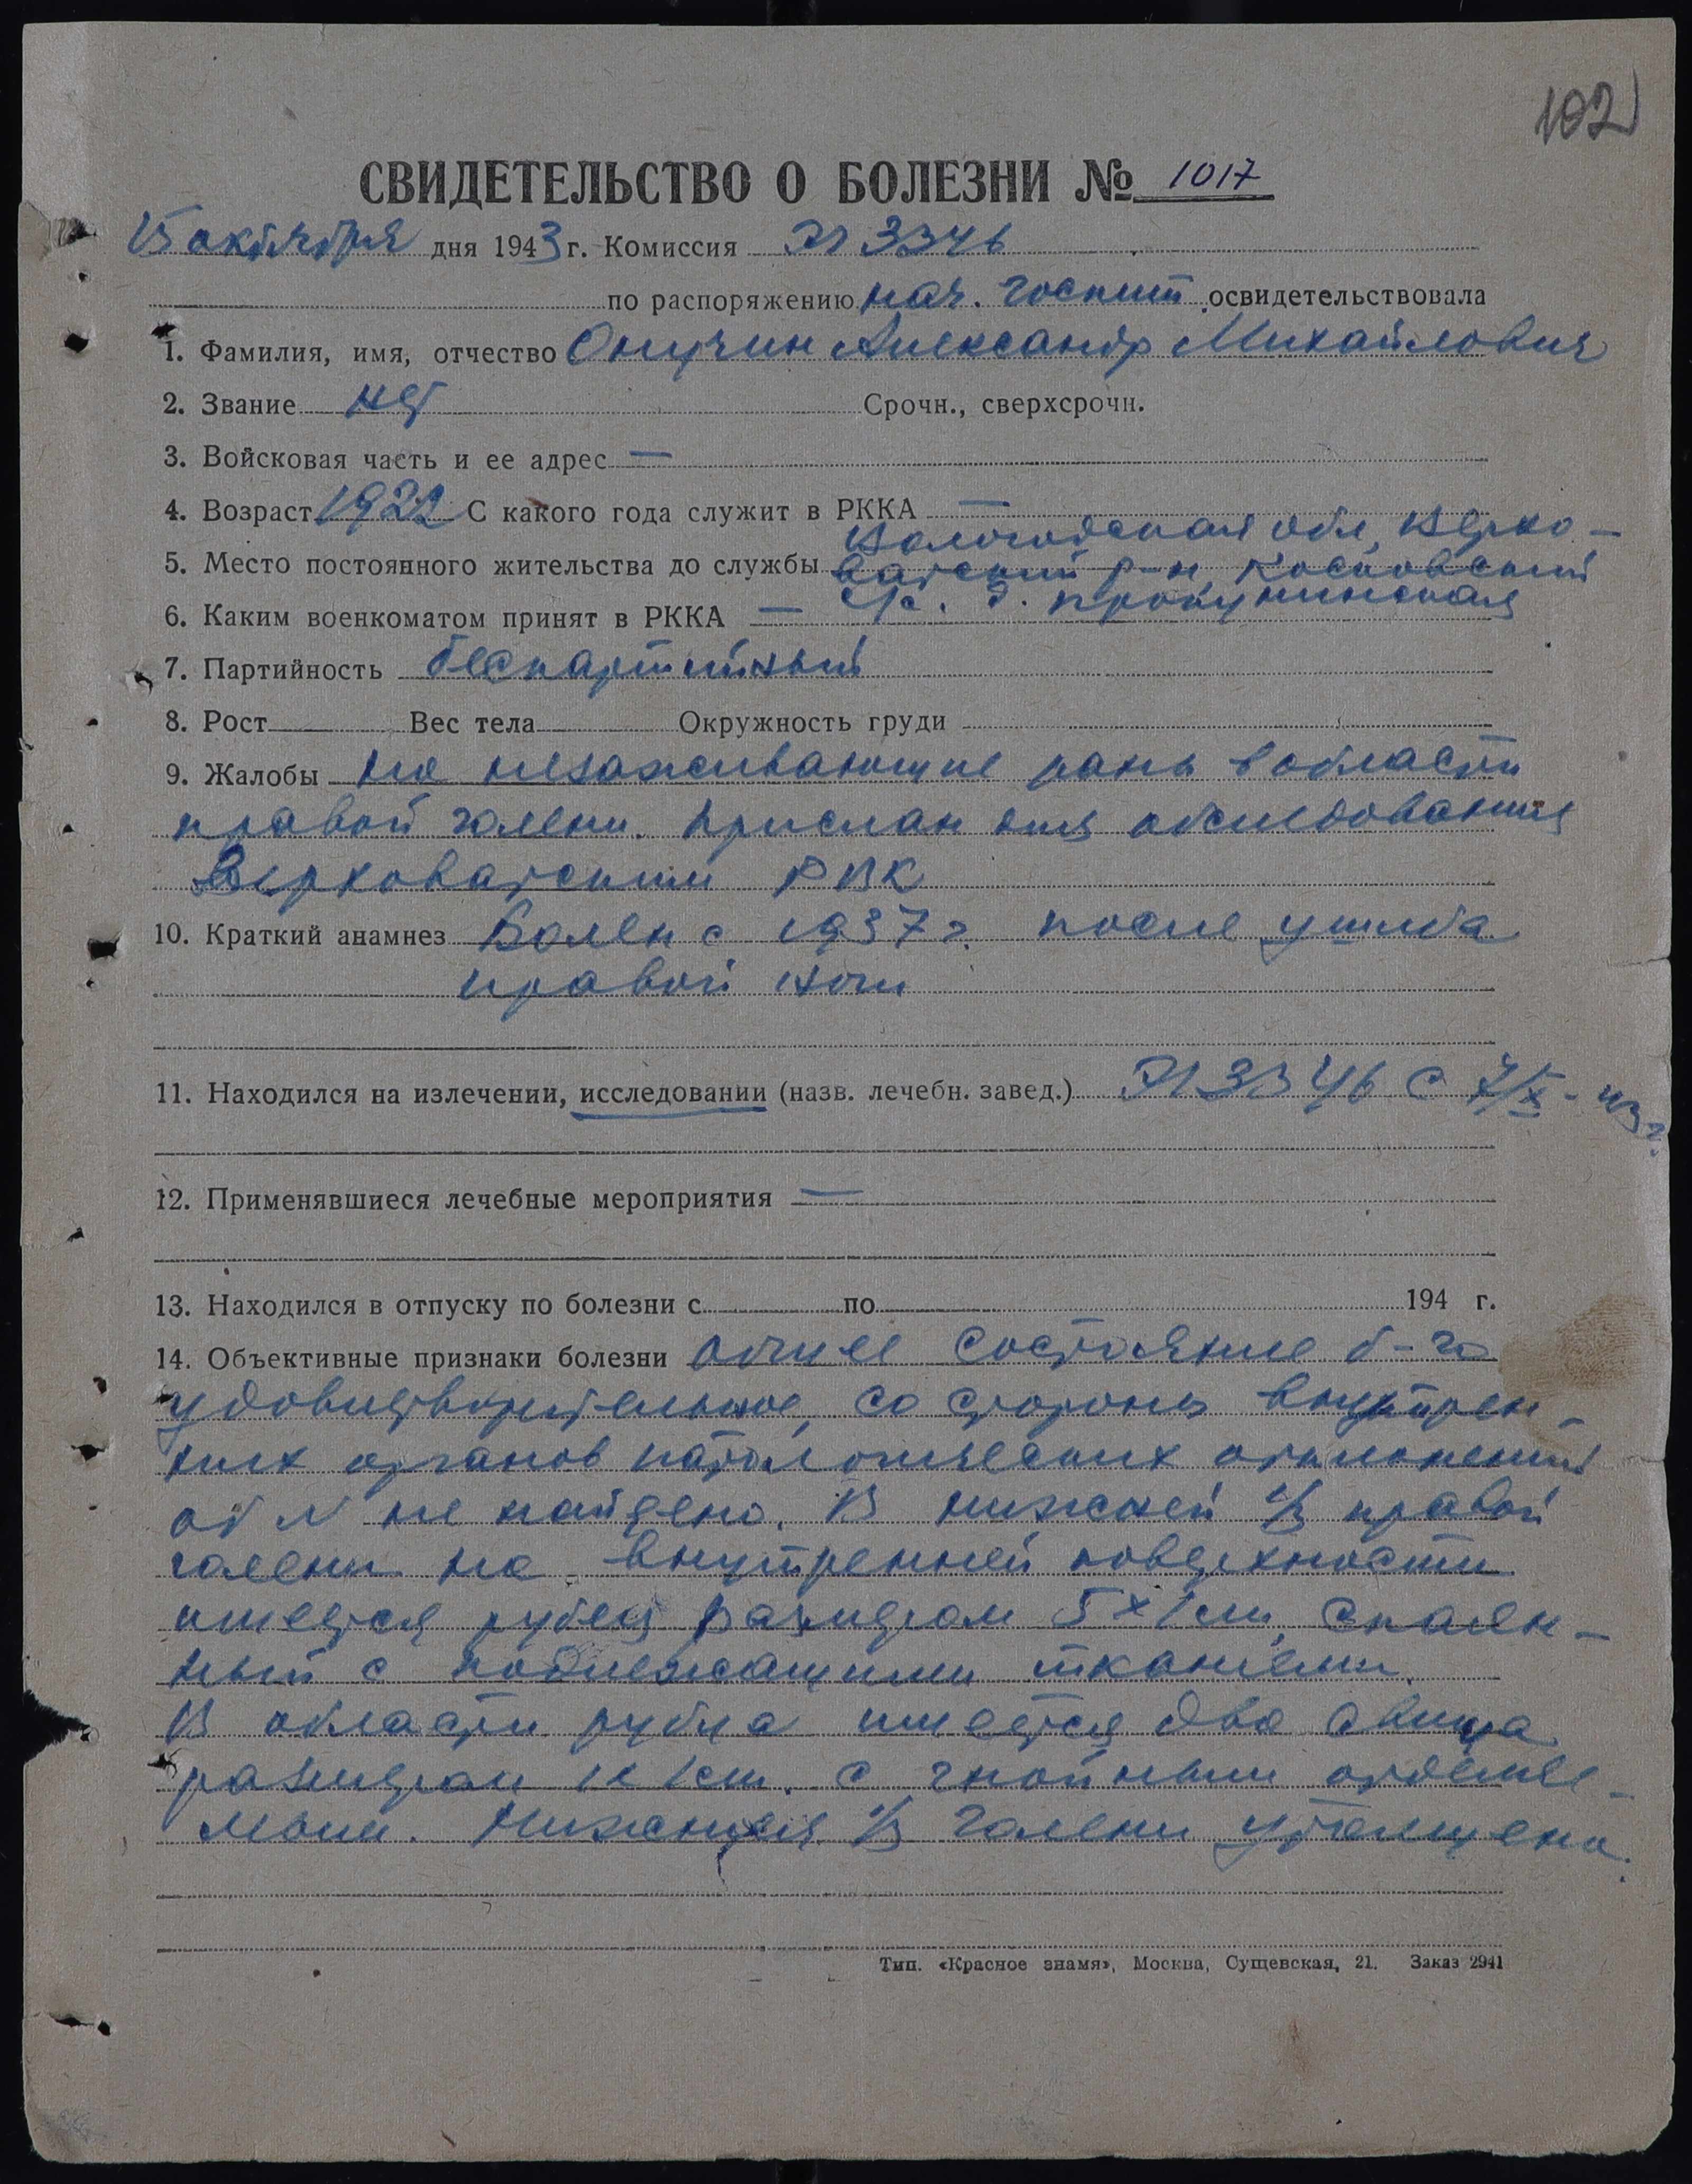 102
СВИДЕТЕЛЬСТВО О БОЛЕЗНИ № 1017
15 октября дня 1943 г. Комиссия ЭГ 3346
по распоряжению нач. госпит освидетельствовала
1. Фамилия, имя, отчество Онучин Александр Михайлович
2. Звание нет Срочн., сверхсрочн.
3. Войсковая часть и ее адрес —
4. Возраст 1922 С какого года служит в РККА —
Вологодская обл, Верхо-
5. Место постоянного жительства до службы важский р-н, Косковский
6. Каким военкоматом принят в РККА — с/с. д. Прокунинская
7. Партийность беспартийный
8. Рост Вес тела Окружность груди
9. Жалобы на незаживающие раны в области
правой голени. Прислан для обследования
Верховажским РВК
10. Краткий анамнез Болен с 1937 г. после ушиба
правой ноги
11. Находился на излечении, исследовании (назв. лечебн. завед.) ЭГ 3346 с 7/X - 43 г.
12. Применявшиеся лечебные мероприятия —
13. Находился в отпуску по болезни с по 194 г.
14. Объективные признаки болезни общее состояние б-го
удовлетворительное, со стороны внутрен-
них органов патологических отклонений
от N не найдено. В нижней 1/3 правой
голени на внутренней поверхности
имеется рубец размером 5×1 см, спаян-
ный с подлежащими тканями.
В области рубца имеется два свища
размером 1х1см. с гнойными отделяе-
мым. Нижняя 1/3 голени утолщена.
Тип. «Красное знамя», Москва, Сущевская, 21. Заказ 2941